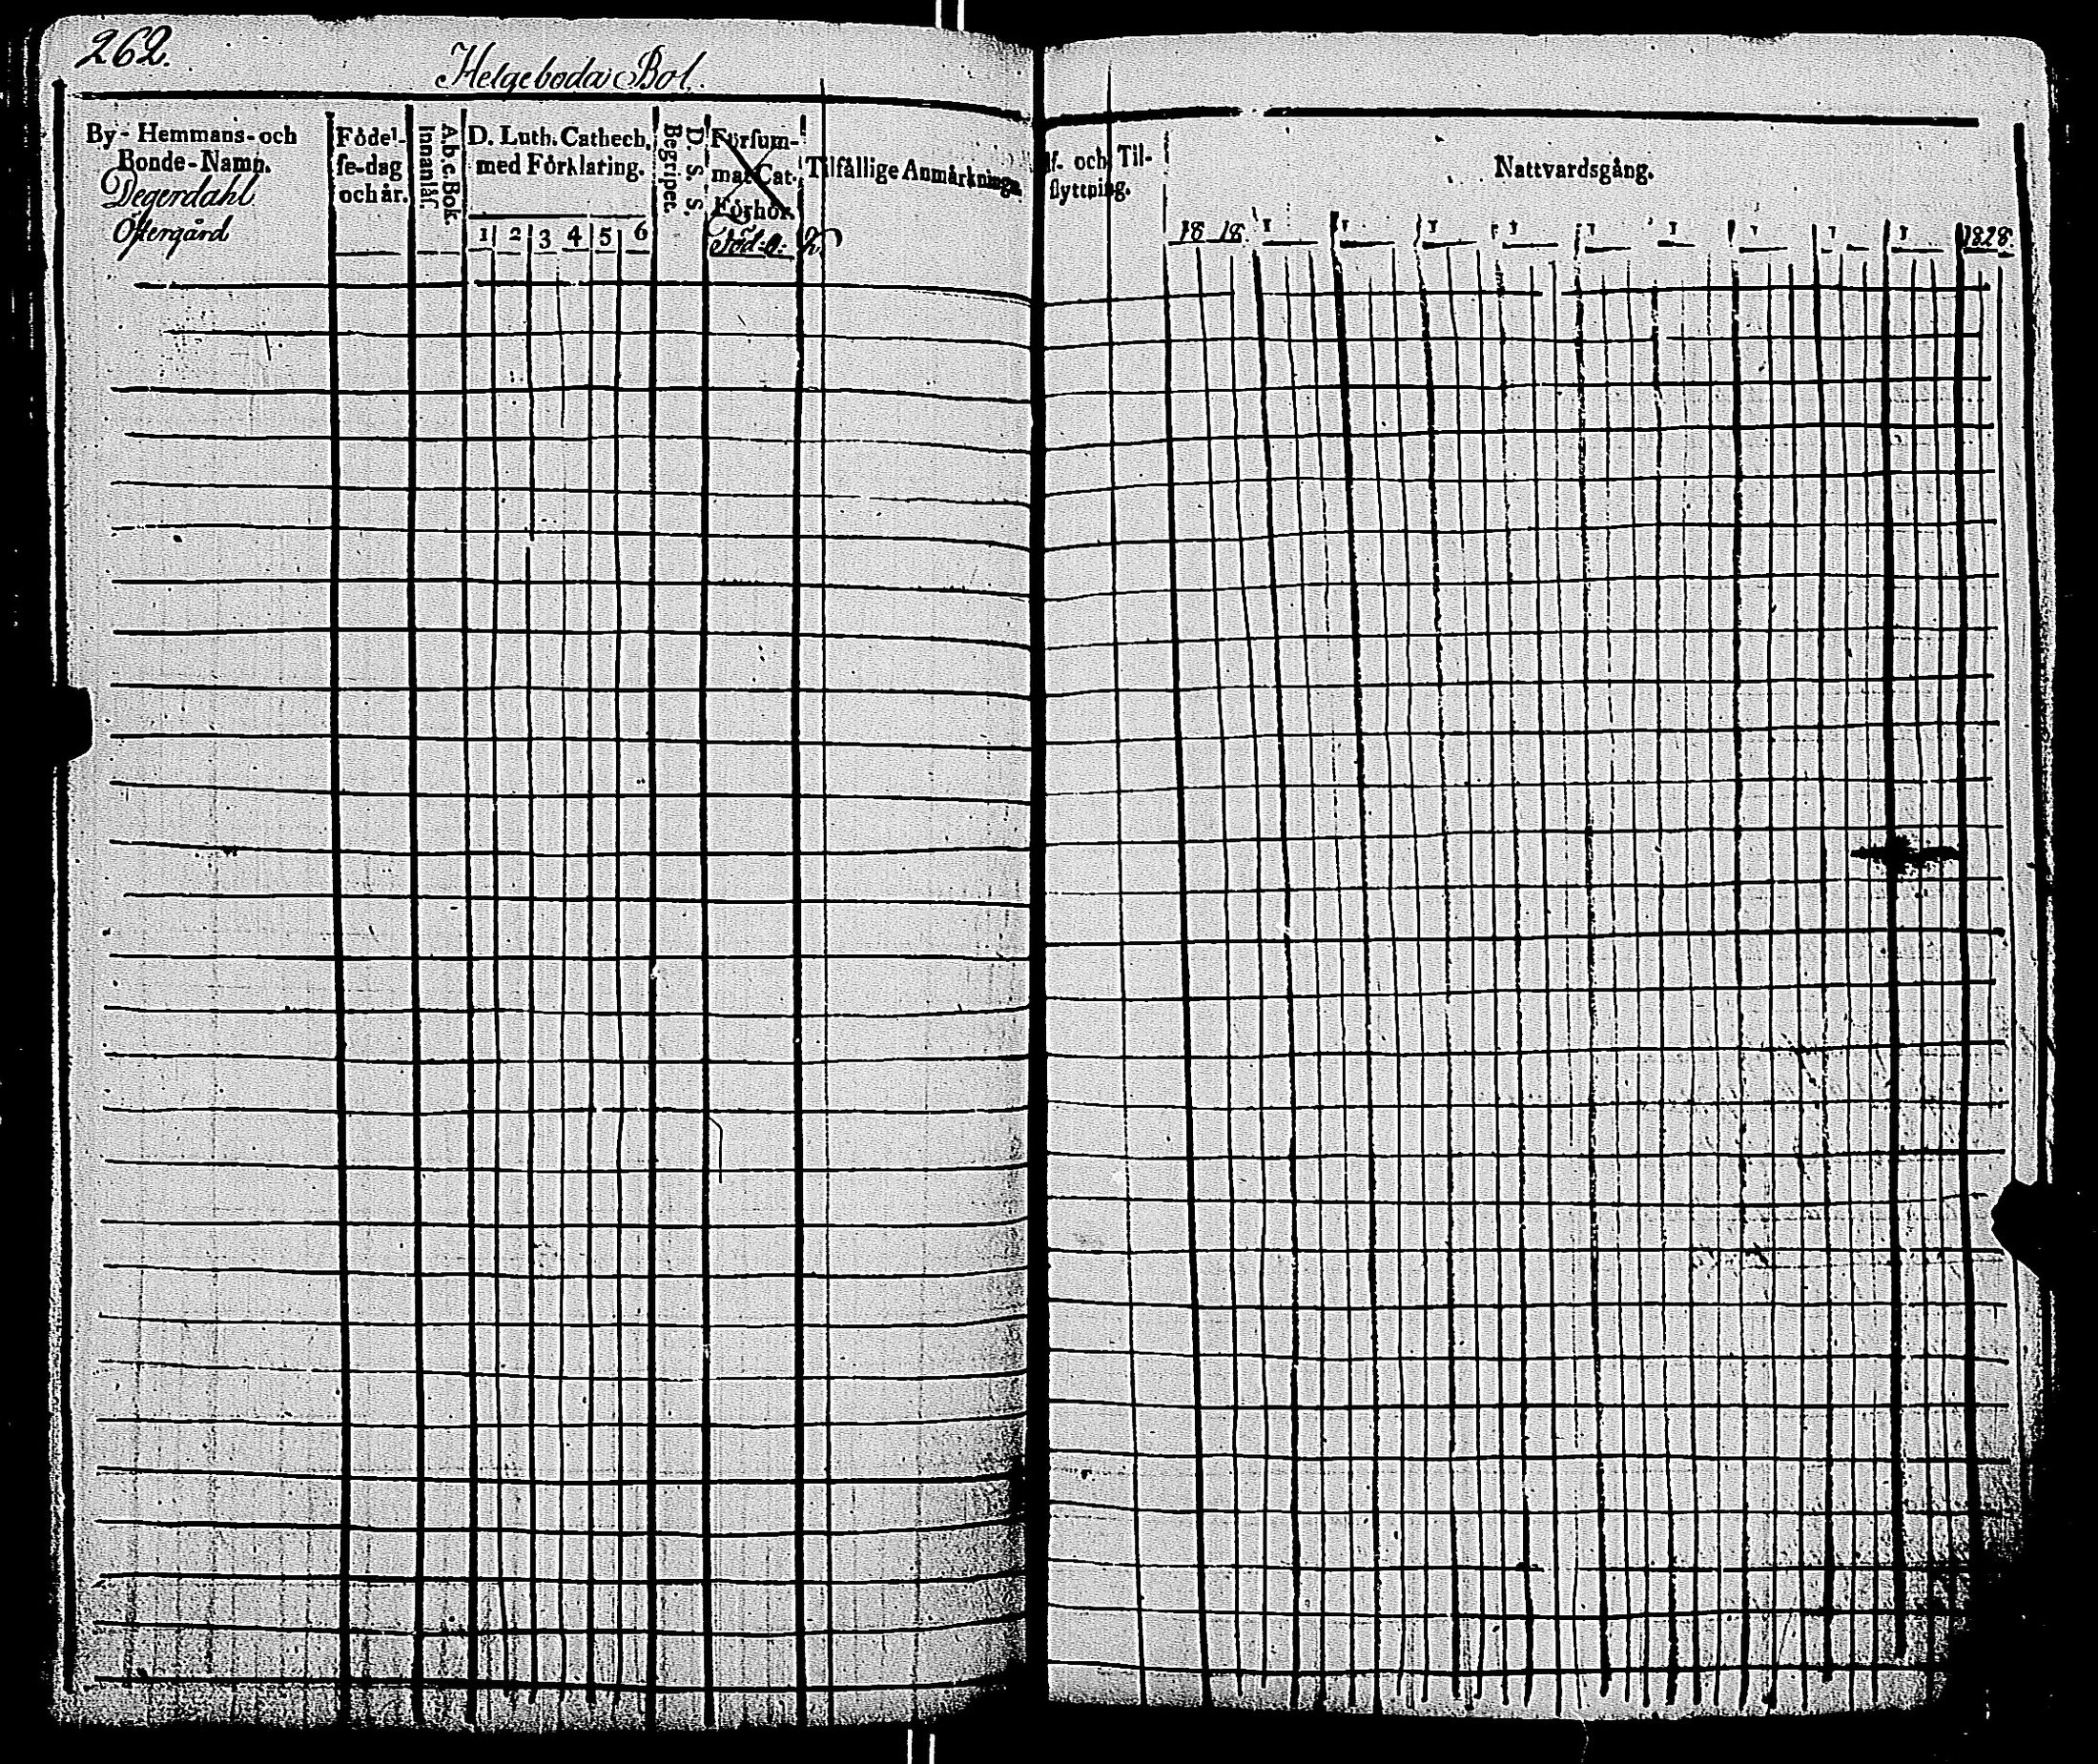 262.
Helgeboda Bol.
By- Hemmans- och
Bonde-Namn.
Degerdahl
Östergård
Födel-
se-dag
och år.
A.b.c. Bok.
Innanläs.
D. Luth. Cathech.
med Förklaring.
1 2 3 4 5 6
D. S. S.
Begripet.
Försum-
mat Cat.
Förhör.
Föd. o.
Tilfällige Anmärkninga
Af- och Til-
flyttning.
Nattvardsgång.
18 18
1828.